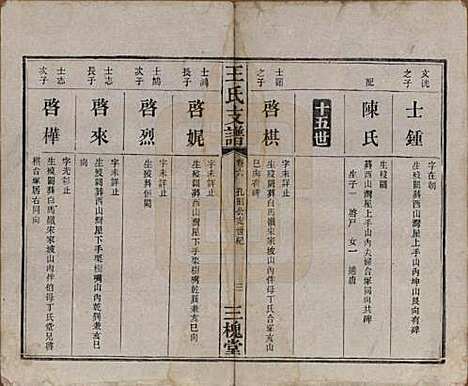 文洸之子
士鍾
字在朝
生歿闕
葬西山灣屋上手山內坤山艮向
配
陳氏
生歿闕
葬西山灣屋上手山內夫婦合塚同向共碑
生子一 啓戶 女一 適唐
十五世
士
之子
啓棋
生歿闕葬白馬嶺宋家坡山內伴母丁氏合塚亥山
巳向有碑
王氏支譜
卷六
三
三槐堂
士鴻
長子
啓妮
字未詳
生歿闕葬西山灣下手栗樹嘴山內
士鴻
次子
啓烈
字未詳
生歿葬俱闕
士志
長子
啓來
字未詳
生歿闕葬西山灣下手栗樹嘴山內 山 向
士志
次子
啓樺
字光前
生歿闕葬白馬嶺宋家坡山內伴伯母丁氏堂兄啓
棋合塚居右同向